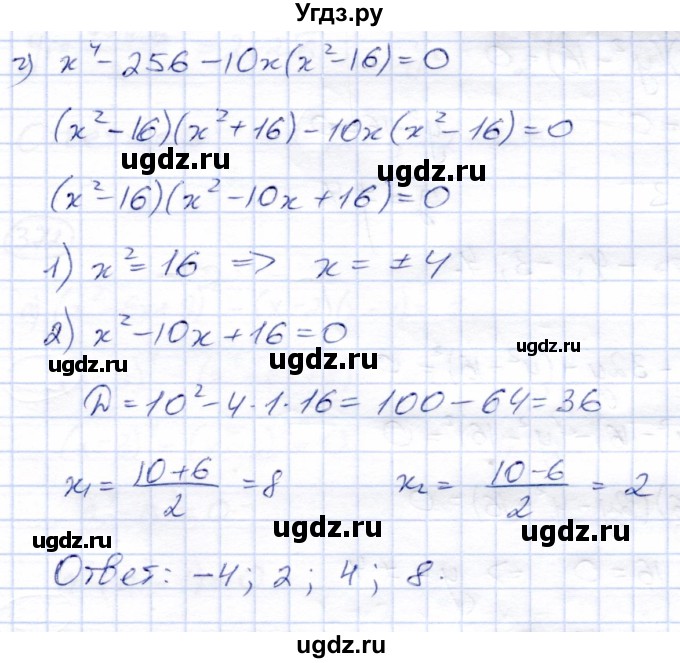 Угдз.ру
г) x⁴ - 256 - 10x(x² - 16) = 0
(x² - 16)(x² + 16) - 10x(x² - 16) = 0
ugdz.ru ugdz.ru
(x² - 16)(x² - 10x + 16) = 0
ugdz.ru
1) x² = 16 => x = ± 4
2) x² - 10x + 16 = 0
ugdz.ru ugdz.ru
D = 10² - 4 · 1 · 16 = 100 - 64 = 36
ugdz.ru
x₁ = (10 + 6)/2 = 8 x₂ = (10 - 6)/2 = 2
ugdz.ru ugdz.ru ugdz.ru
Ответ: -4; 2; 4; 8.
ugdz.ru